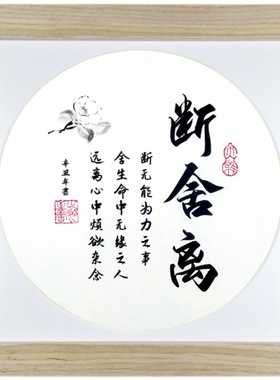 断舍离
断无能为力之事
舍生命中无缘之人
远离心中烦欲杂念
辛丑年书